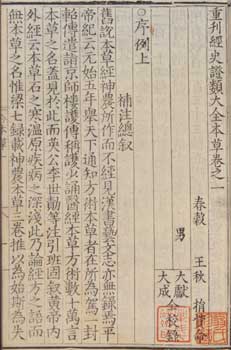 重刊經史證類大全本草卷之一
春穀 王秋 捐貲命
男 大獻
大成 仝校錄
○序例上
補注總叙
舊說本草經神農所作而不經見漢書藝文志亦無錄焉平
帝紀云元始五年舉天下通知方術本草者在所為駕一封
軺傳遣詣京師樓護傳稱護少誦醫經本草方術數十萬言
本草之名蓋見於此而英公李世勣等注引班固叙黃帝內
外經云本草石之寒温原疾病之深淺此乃論經方之語而
無本草之名惟梁七錄載神農本草三卷推以為始斯為失